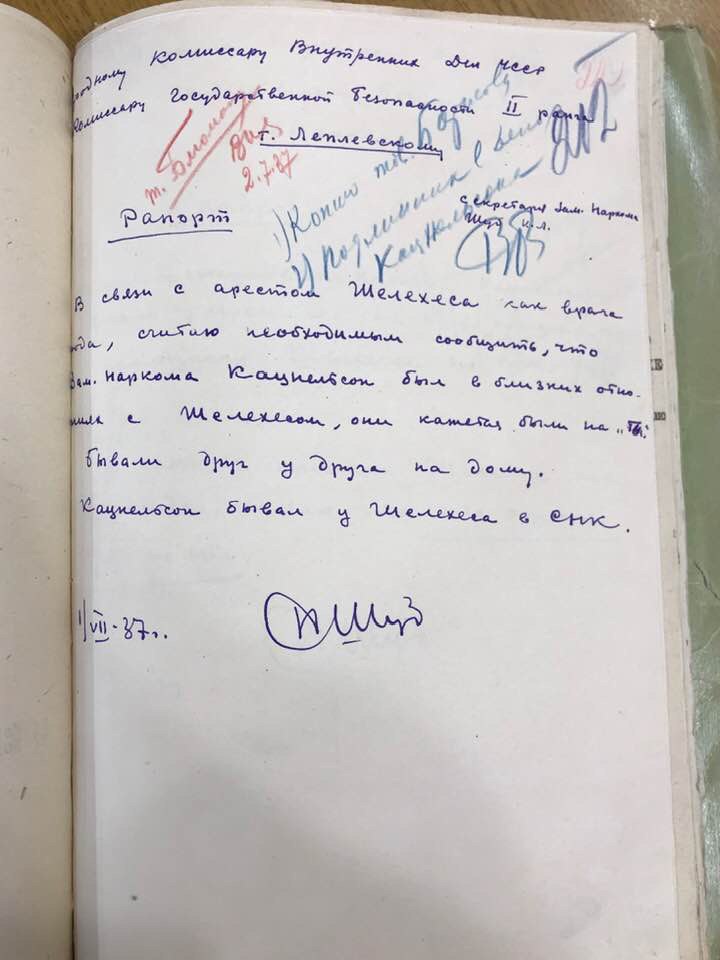 родному Комиссару Внутренних Дел УССР
Комиссару Государственной Безопасности II ранга
т. Леплевскому
т.
2.7.37
1) Копию тов.
2) Подлинник в дело
Кацнельсона
Секретаря Зам. Наркома
Шур К.Л.
Рапорт
В связи с арестом Шелехеса как врага
рода, считаю необходимым сообщить, что
Зам. Наркома Кацнельсон был в близких отно-
с Шелехесом, они кажется были на „ты“
бывали друг у друга на дому.
Кацнельсон бывал у Шелехеса в СНК.
1/VII-37г.